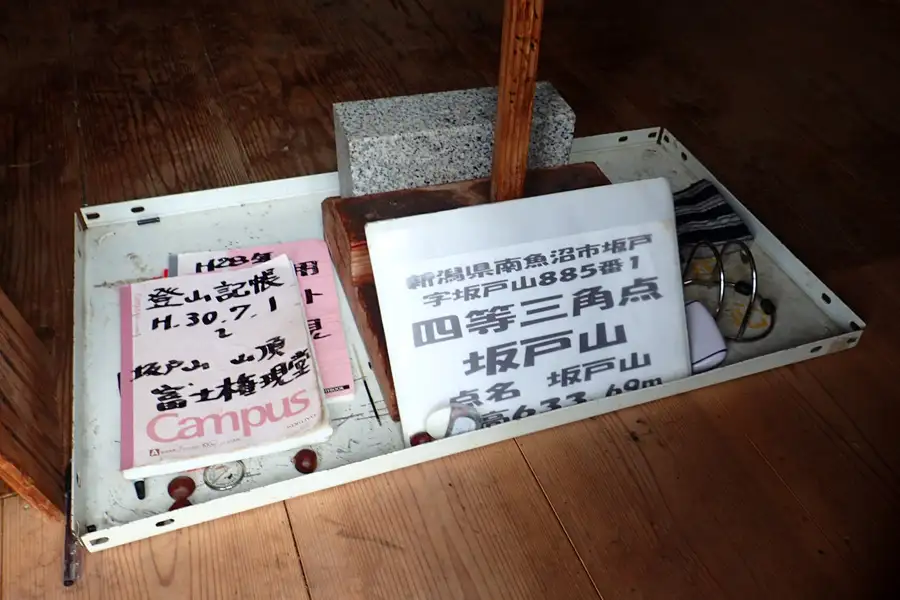 H28年
用
ト
見
登山記帳
H.30.7.1
~
坂戸山 山頂
富士権現堂
Campus
新潟県南魚沼市坂戸
字坂戸山885番1
四等三角点
坂戸山
点名 坂戸山
高633.69m